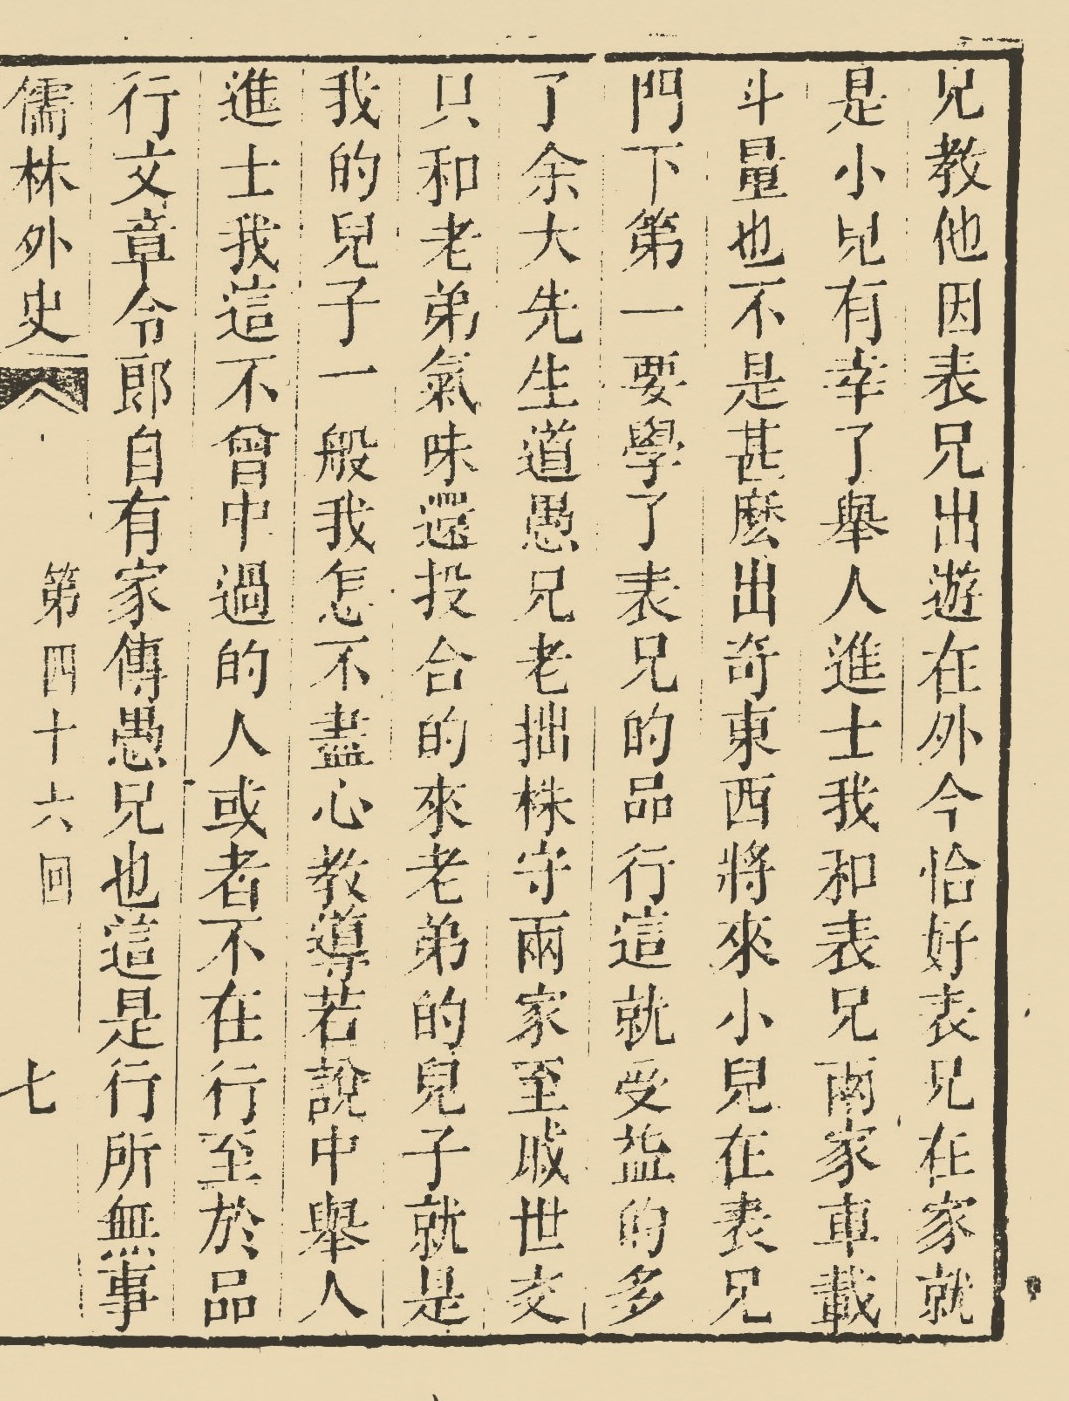 兄教他因表兄出遊在外今恰好表兄在家就
是小兒有幸了舉人進士我和表兄兩家車載
斗量也不是甚麽出奇東西將來小兒在表兄
門下第一要學了表兄的品行這就受益的多
了余大先生道愚兄老拙株守兩家至戚世交
只和老弟氣味還投合的來老弟的兒子就是
我的兒子一般我怎不盡心教導若說中舉人
進士我這不曾中過的人或者不在行至於品
行文章令郎自有家傳愚兄也這是行所無事
儒林外史 第四十六回 七